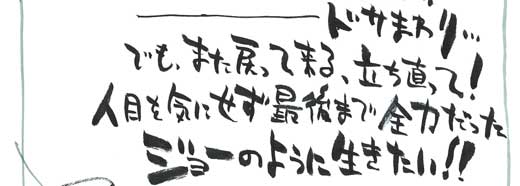 ドサまわり…
でも、また戻って来る、立ち直って!
人目を気にせず最後まで全力だった
ジョーのように生きたい!!